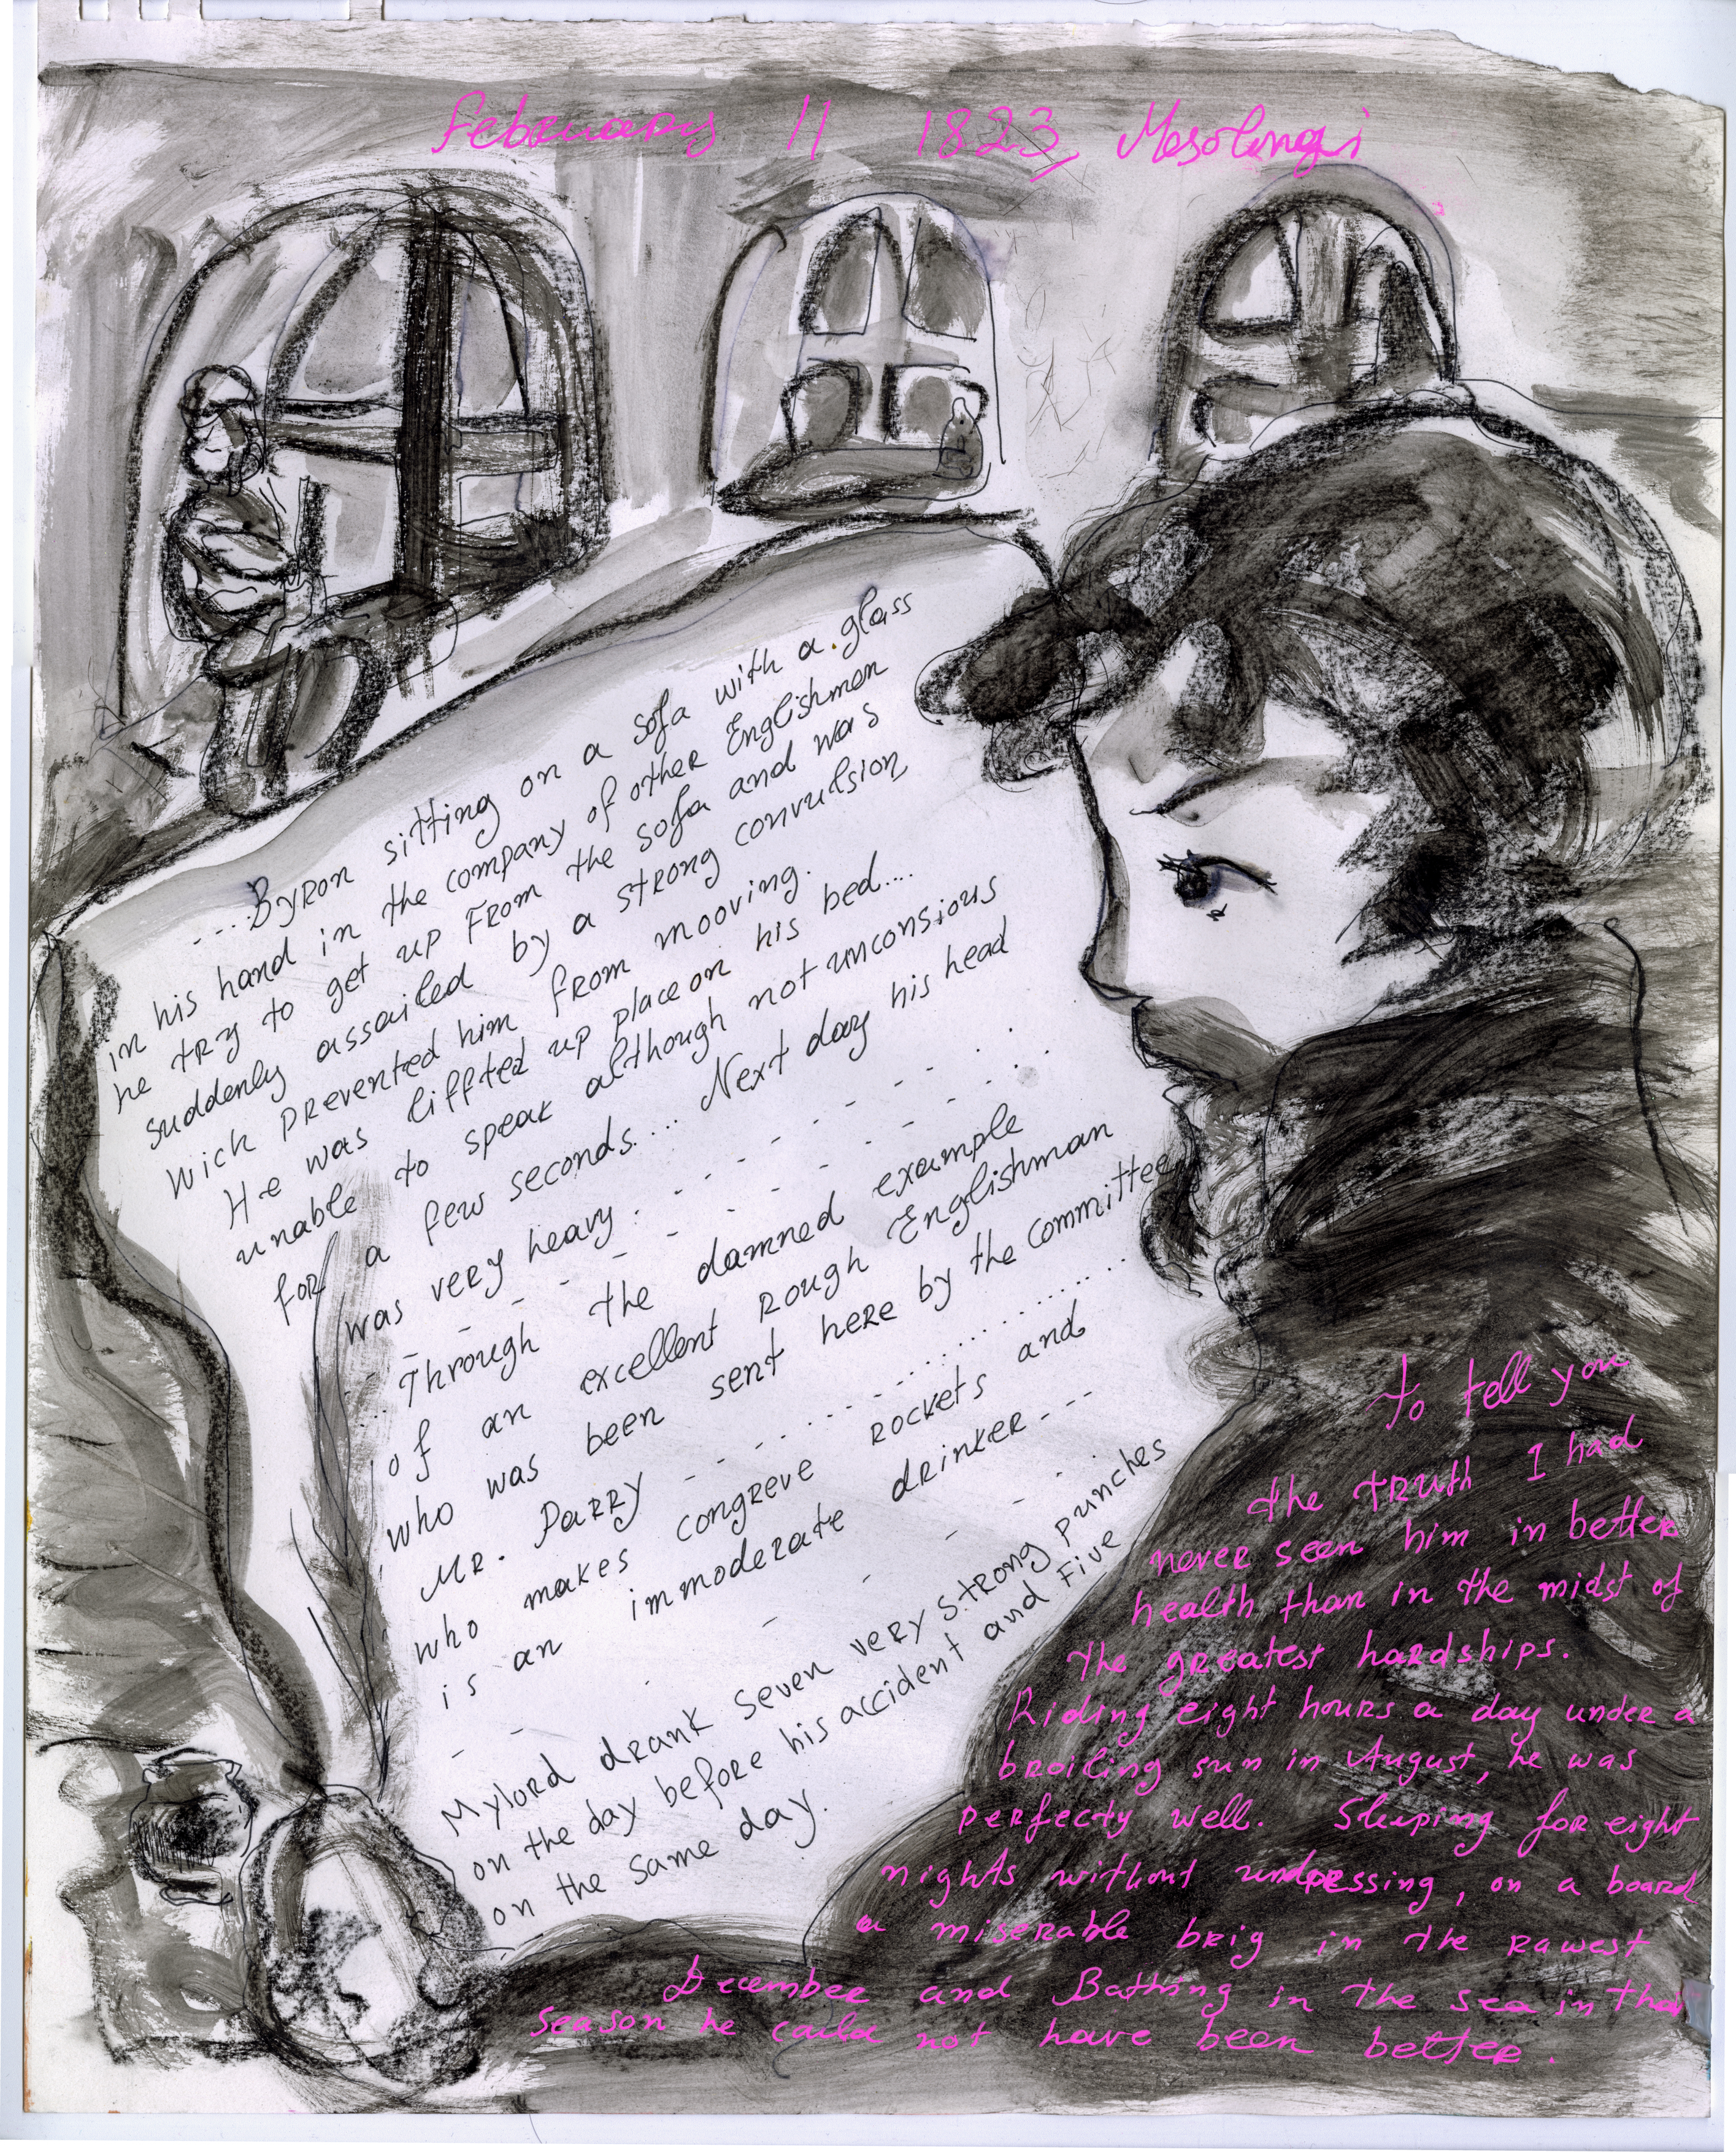 February 11 1823, Mesolongi
....Byron sitting on a sofa with a glass
in his hand in the company of other Englishmen
he try to get up from the sofa and was
suddenly assailed by a strong convulsion
wick prevented him from mooving.
He was liffted up place on his bed....
unable to speak although not unconsious
for a few seconds.... Next day his head
was very heavy.
... Through the damned example
of an excellent rough Englishman
who was been sent here by the committee
Mr. Parry
who makes congreve rockets and
is an immoderate drinker--
Mylord drank seven very strong punches
on the day before his accident and five
on the same day.
To tell you
the truth I had
never seen him in better
health than in the midst of
the greatest hardships.
Riding eight hours a day under a
broiling sun in August, he was
perfecty well. Sleeping for eight
nights without undressing, on a board
a miserable brig in the rawest
December and Bathing in the sea in that
season he could not have been better.